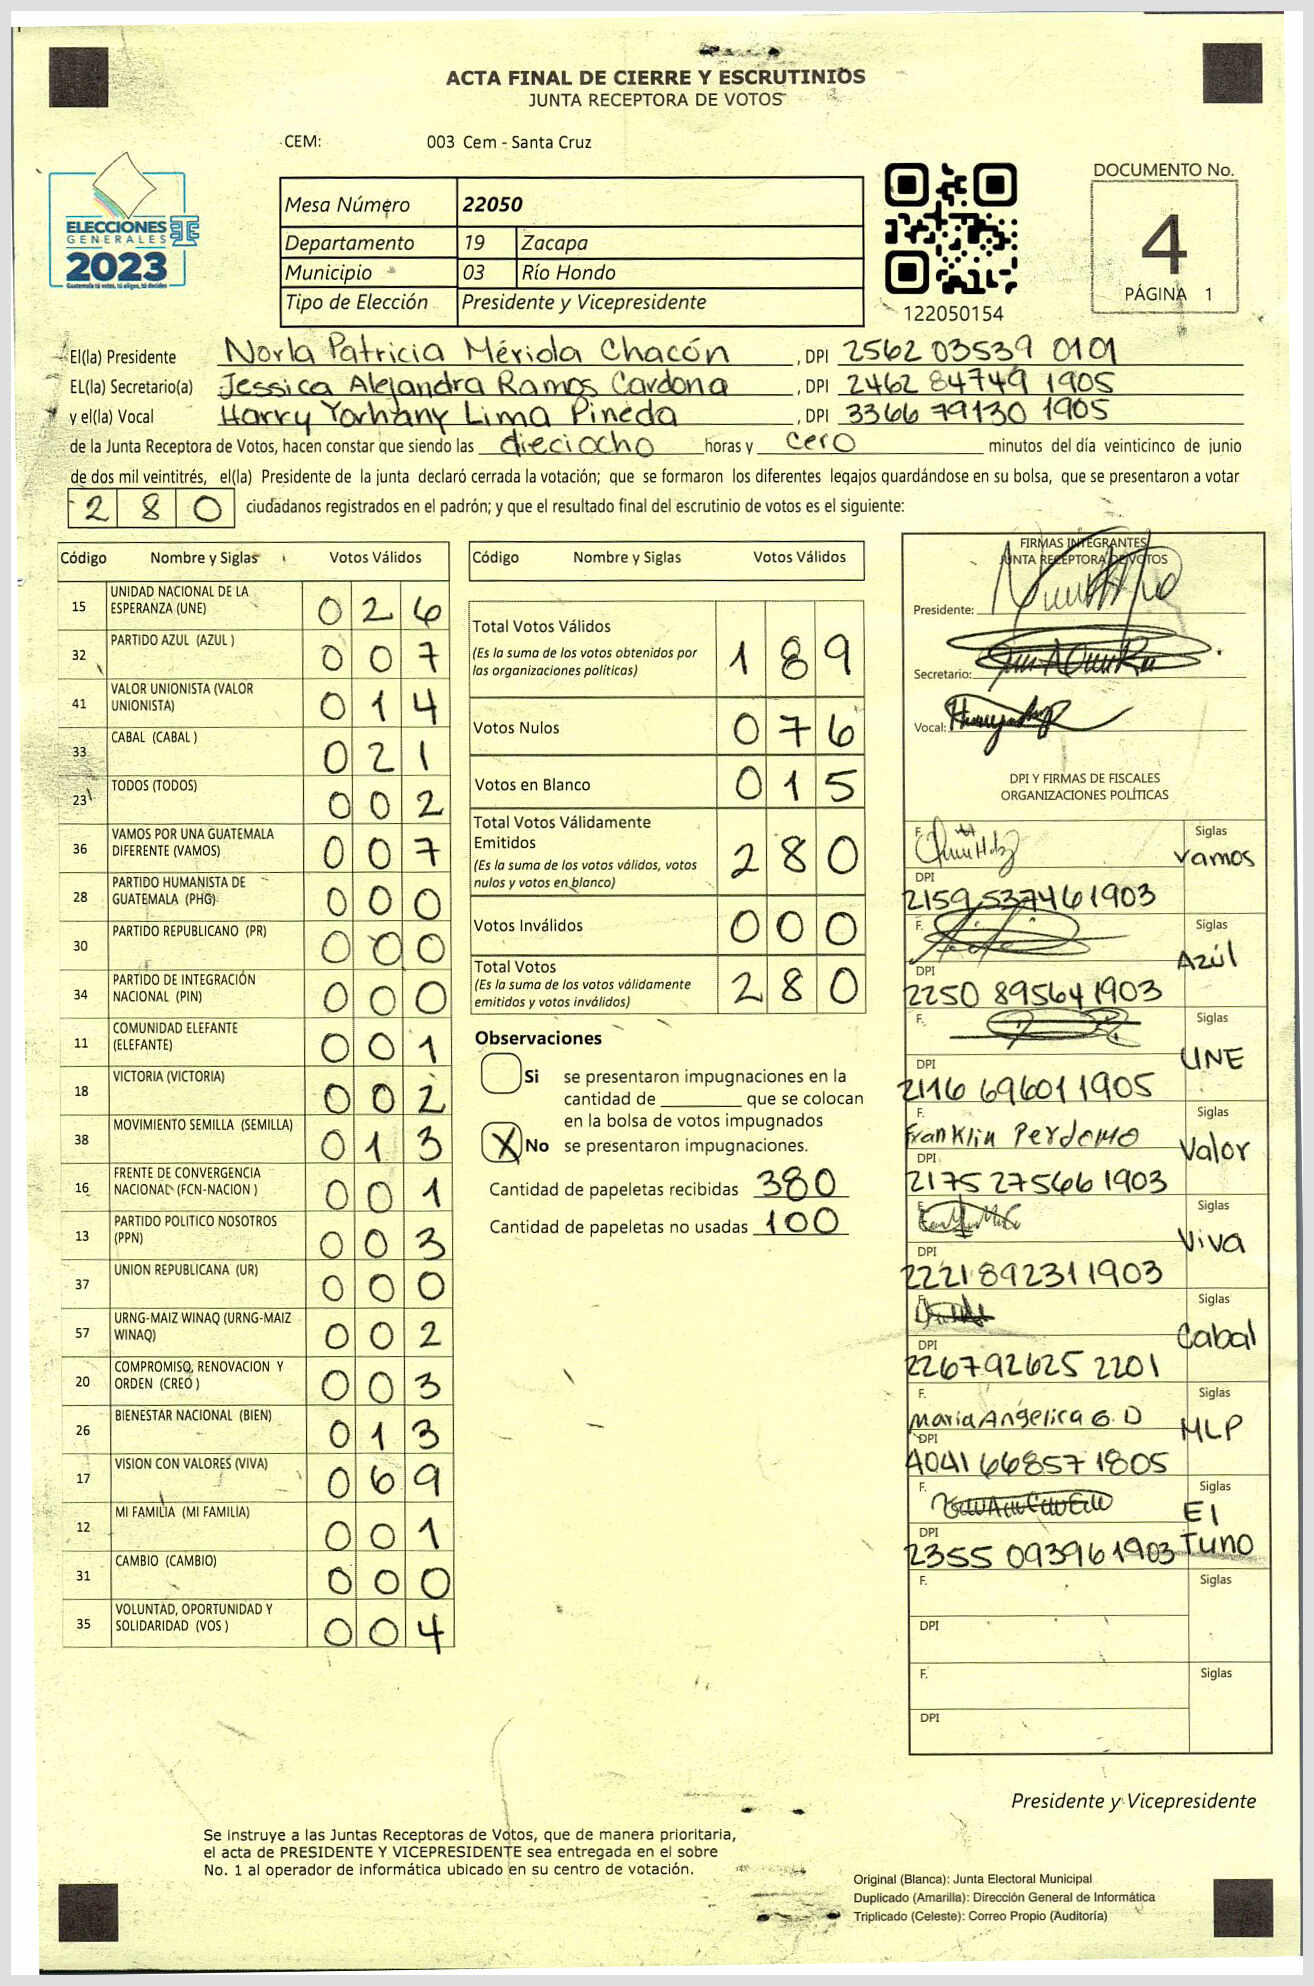 ACTA FINAL DE CIERRE Y ESCRUTINIOS
JUNTA RECEPTORA DE VOTOS
CEM: 003 Cem - Santa Cruz
ELECCIONES
GENERALES
2023
Guatemala tú votas, tú eliges, tú decides
Mesa Número 22050
Departamento 19 Zacapa
Municipio 03 Río Hondo
Tipo de Elección Presidente y Vicepresidente
122050154
DOCUMENTO No.
4
PÁGINA 1
El(la) Presidente Norla Patricia Mérida Chacón , DPI 2562 03539 0101
EL(la) Secretario(a) Jessica Alejandra Ramos Cardona , DPI 2462 84749 1905
y el(la) Vocal Harry Yorhany Lima Pineda , DPI 3366 79130 1905
de la Junta Receptora de Votos, hacen constar que siendo las dieciocho horas y cero minutos del día veinticinco de junio
de dos mil veintitrés, el(la) Presidente de la junta declaró cerrada la votación; que se formaron los diferentes legajos guardándose en su bolsa, que se presentaron a votar
280 ciudadanos registrados en el padrón; y que el resultado final del escrutinio de votos es el siguiente:
Código Nombre y Siglas Votos Válidos
15 UNIDAD NACIONAL DE LA ESPERANZA (UNE) 026
32 PARTIDO AZUL (AZUL ) 007
41 VALOR UNIONISTA (VALOR UNIONISTA) 014
33 CABAL (CABAL ) 021
23 TODOS (TODOS) 002
36 VAMOS POR UNA GUATEMALA DIFERENTE (VAMOS) 007
28 PARTIDO HUMANISTA DE GUATEMALA (PHG) 000
30 PARTIDO REPUBLICANO (PR) 000
34 PARTIDO DE INTEGRACIÓN NACIONAL (PIN) 000
11 COMUNIDAD ELEFANTE (ELEFANTE) 001
18 VICTORIA (VICTORIA) 002
38 MOVIMIENTO SEMILLA (SEMILLA) 013
16 FRENTE DE CONVERGENCIA NACIONAL (FCN-NACION ) 001
13 PARTIDO POLITICO NOSOTROS (PPN) 003
37 UNION REPUBLICANA (UR) 000
57 URNG-MAIZ WINAQ (URNG-MAIZ WINAQ) 002
20 COMPROMISO, RENOVACION Y ORDEN (CREO ) 003
26 BIENESTAR NACIONAL (BIEN) 013
17 VISION CON VALORES (VIVA) 069
12 MI FAMILIA (MI FAMILIA) 001
31 CAMBIO (CAMBIO) 000
35 VOLUNTAD, OPORTUNIDAD Y SOLIDARIDAD (VOS ) 004
Código Nombre y Siglas Votos Válidos
Total Votos Válidos 189
(Es la suma de los votos obtenidos por
las organizaciones políticas)
Votos Nulos 076
Votos en Blanco 015
Total Votos Válidamente
Emitidos 280
(Es la suma de los votos válidos, votos
nulos y votos en blanco)
Votos Inválidos 000
Total Votos 280
(Es la suma de los votos válidamente
emitidos y votos inválidos)
Observaciones
Si se presentaron impugnaciones en la
cantidad de ________ que se colocan
en la bolsa de votos impugnados
X No se presentaron impugnaciones.
Cantidad de papeletas recibidas 380
Cantidad de papeletas no usadas 100
FIRMAS INTEGRANTES
JUNTA RECEPTORA DE VOTOS
Presidente:
Secretario:
Vocal:
DPI Y FIRMAS DE FISCALES
ORGANIZACIONES POLÍTICAS
F. Siglas Vamos
DPI 2159 53746 1903
F. Siglas Azúl
DPI 2250 89564 1903
F. Siglas UNE
DPI 2116 69601 1905
F. Franklin Perdomo Siglas Valor
DPI 2175 27566 1903
F. Siglas Viva
DPI 2221 89231 1903
F. Siglas Cabal
DPI 2267 92625 2201
F. Maria Angelica G. D Siglas MLP
DPI 4041 66857 1805
F. Siglas El Tuno
DPI 2355 09396 1903
F. Siglas
DPI
F. Siglas
DPI
Presidente y Vicepresidente
Se instruye a las Juntas Receptoras de Votos, que de manera prioritaria,
el acta de PRESIDENTE Y VICEPRESIDENTE sea entregada en el sobre
No. 1 al operador de informática ubicado en su centro de votación.
Original (Blanca): Junta Electoral Municipal
Duplicado (Amarilla): Dirección General de Informática
Triplicado (Celeste): Correo Propio (Auditoría)